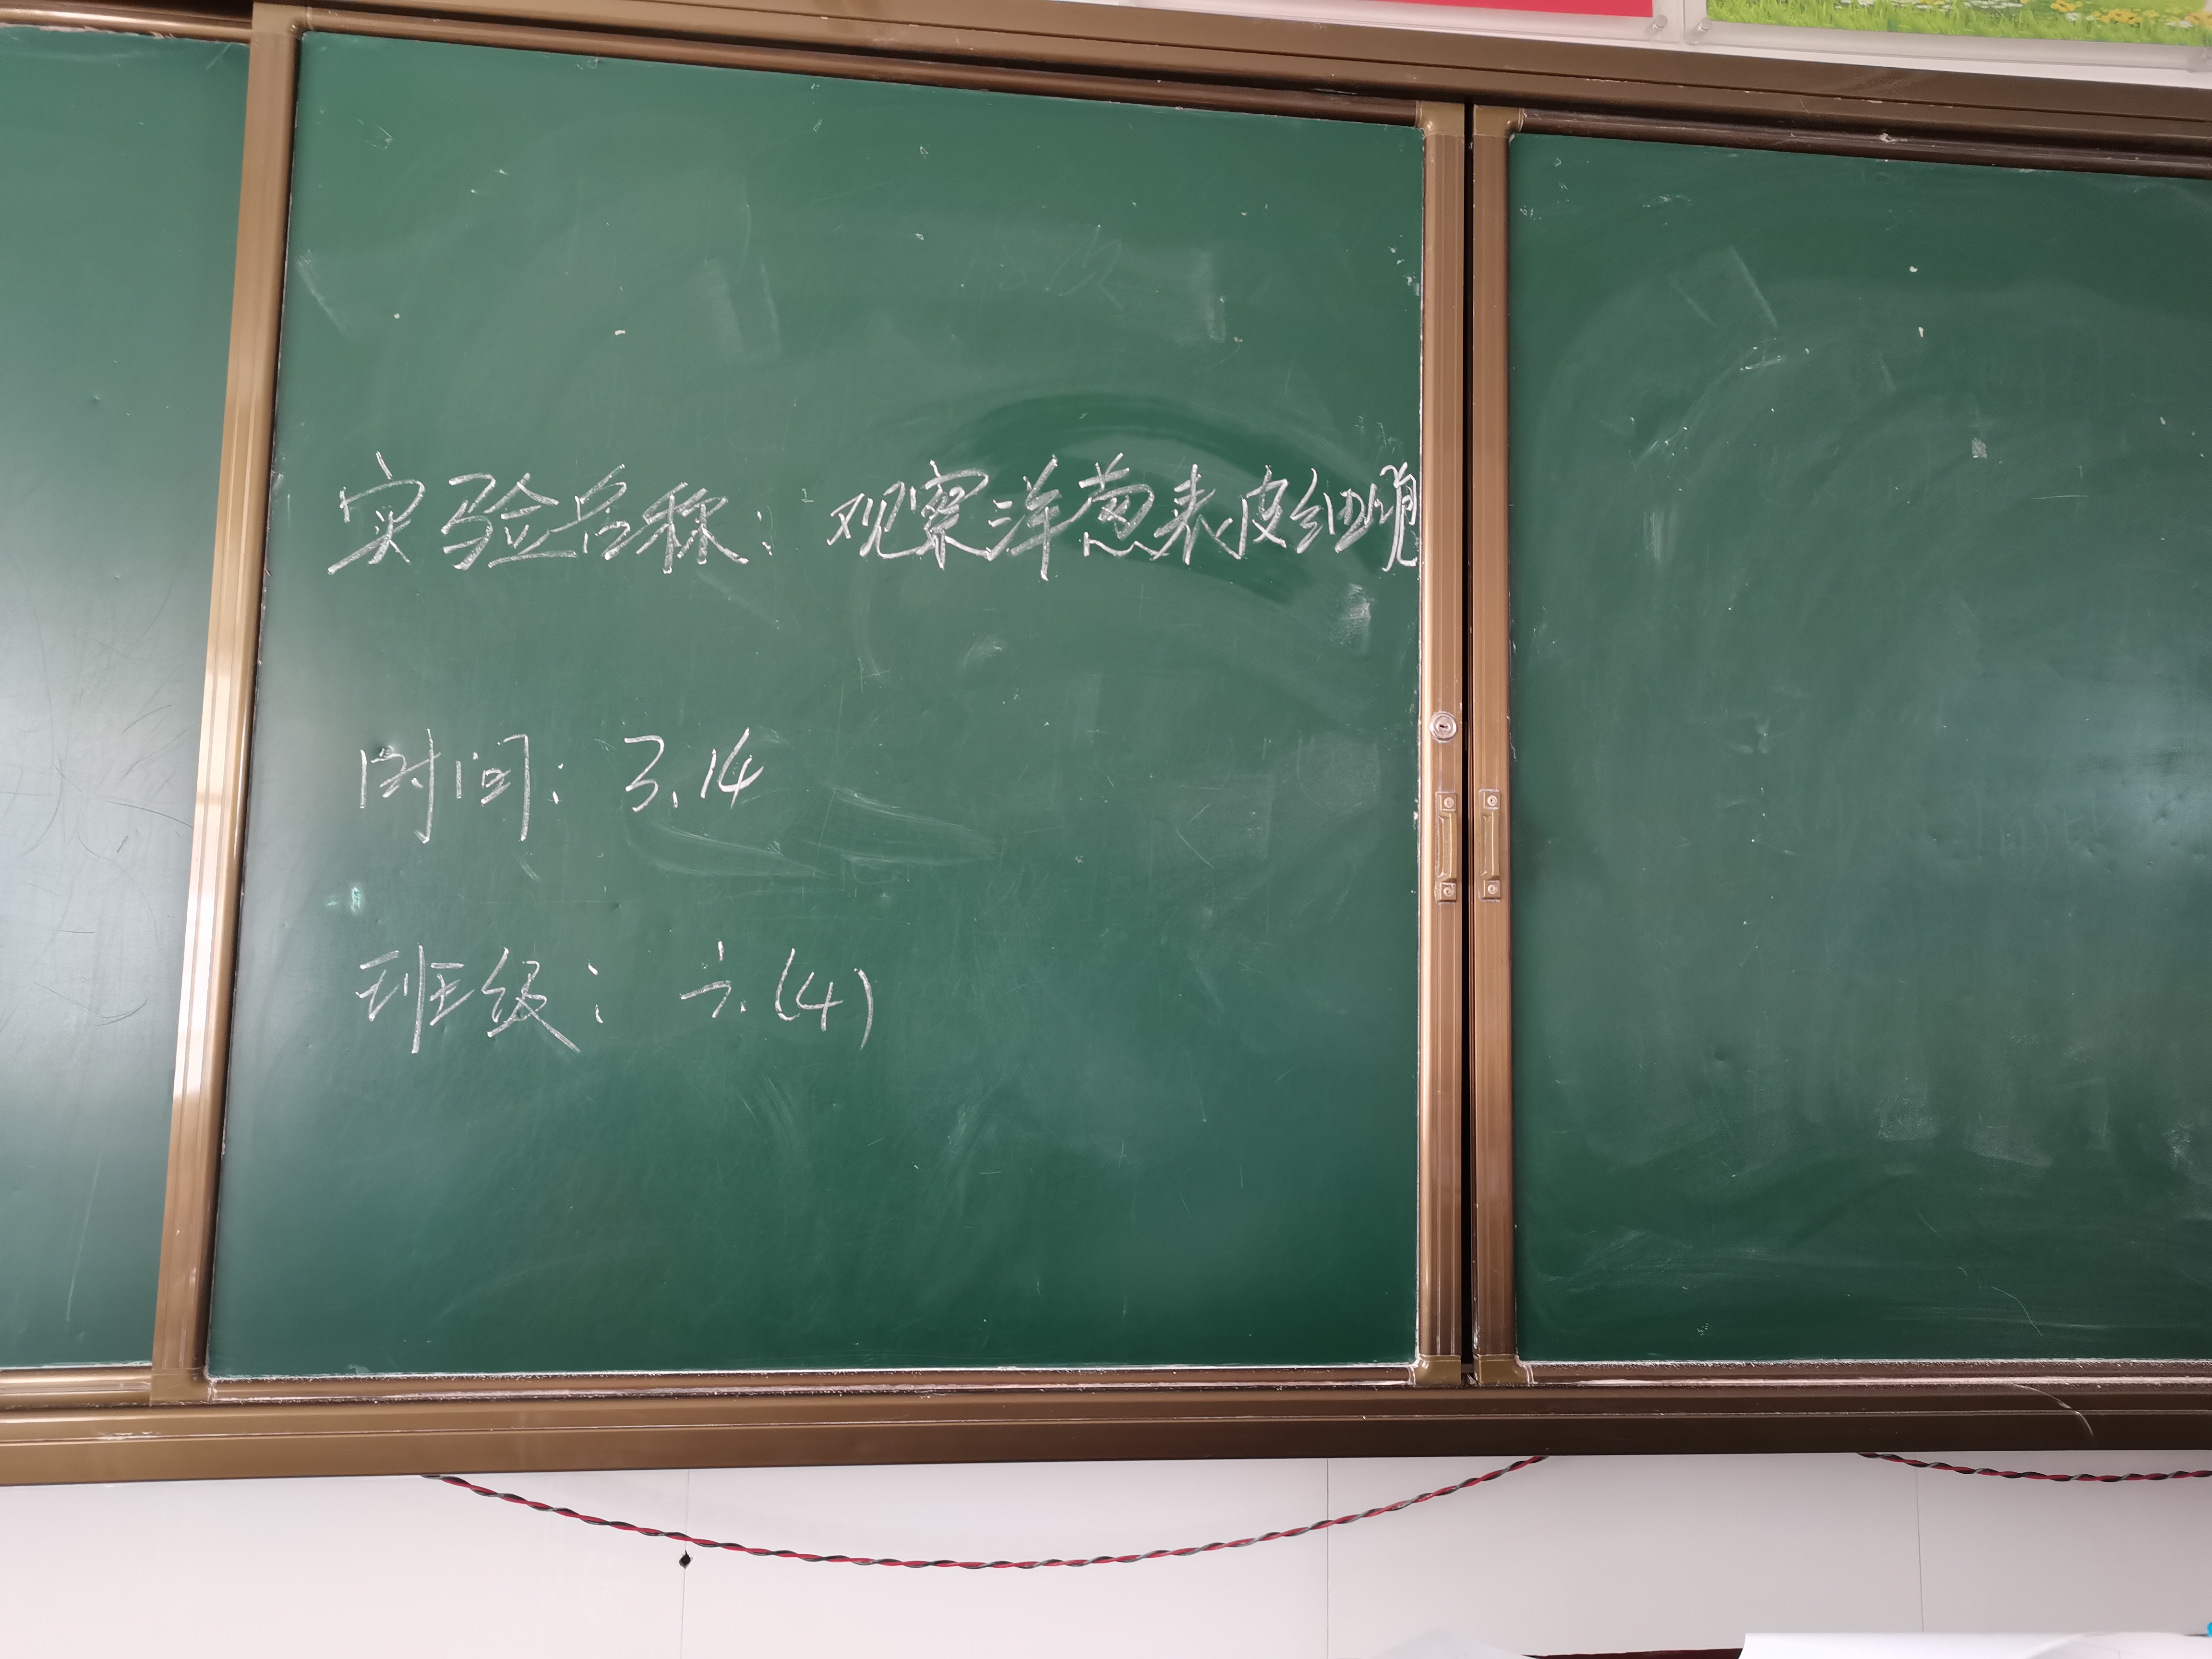 实验名称：观察洋葱表皮细胞
时间：3.14
班级：六.(4)